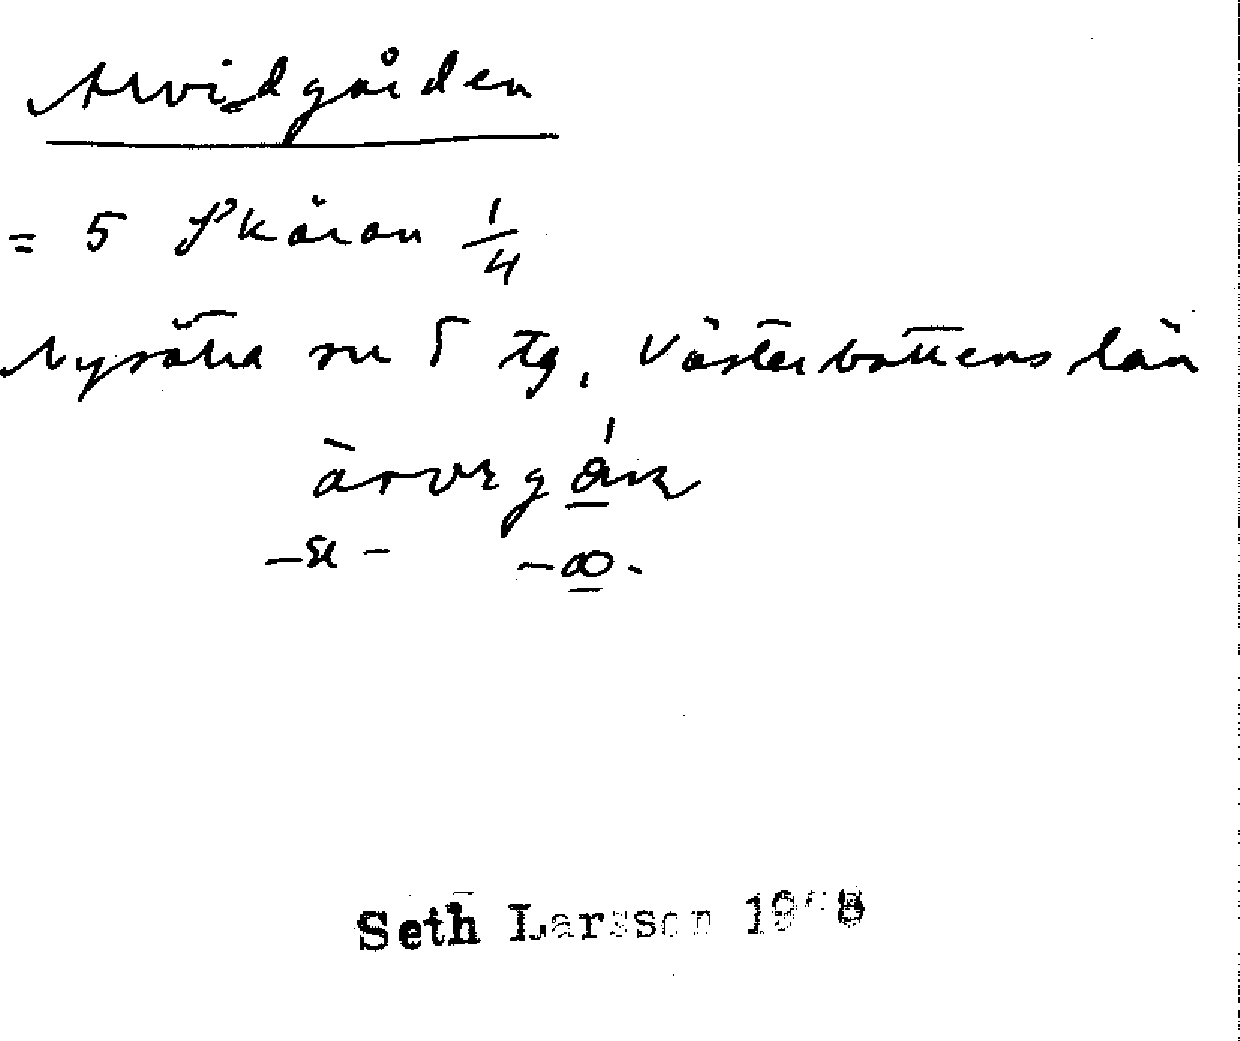 Arvidgården
= 5 Skäran 1/4
Nysätra sn 5 tg. Västerbottens län
Seth Larsson